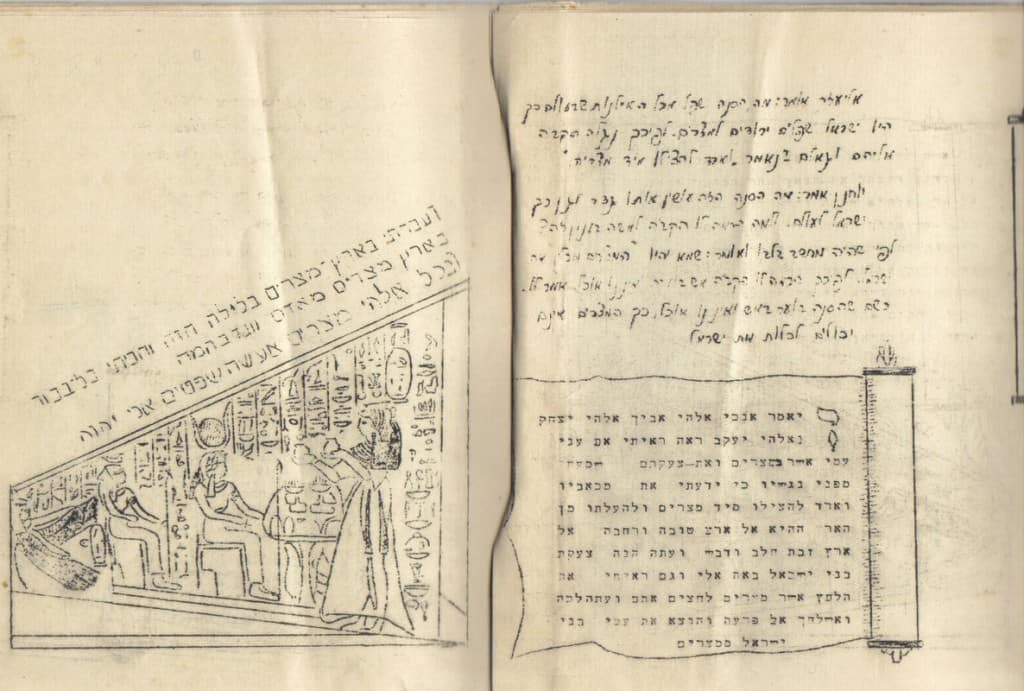 אליעזר אומר: מה הסנה שפל מכל האילנות שבעולם כך
היו ישראל שפלים ירודים למצרים. לפיכך נגלה הקב"ה
עליהם וגאלם שנאמר "וארד להצילו מיד מצרים"
יוחנן אמר: מה הסנה הזה עושין אותו גדר לגן כך
ישראל לעולם. למה הראה לו הקב"ה למשה בענין הזה?
לפי שהיה מחשב בלבו ואומר: שמא יהיו המצרים מכלין את
ישראל. לפיכך הראה לו הקב"ה אש בוערת ואיננו אוכל. אמר לו:
כשם שהסנה בוער באש ואיננו אוכל, כך המצרים אינם
יכולים לכלות את ישראל
יאמר אנכי אלהי אביך אלהי יצחק
ואלהי יעקב ראה ראיתי את עני
עמי אשר במצרים ואת צעקתם שמעתי
מפני נגשיו כי ידעתי את מכאביו
וארד להצילו מיד מצרים ולהעלתו מן
הארץ ההיא אל ארץ טובה ורחבה אל
ארץ זבת חלב ודבש ועתה הנה צעקת
בני ישראל באה אלי וגם ראיתי את
הלחץ אשר מצרים לחצים אתם ועתה לכה
ואשלחך אל פרעה והוצא את עמי בני
ישראל ממצרים
ועברתי בארץ מצרים בלילה הזה והכיתי כל בכור
בארץ מצרים מאדם ועד בהמה
ובכל אלהי מצרים אעשה שפטים אני יהוה